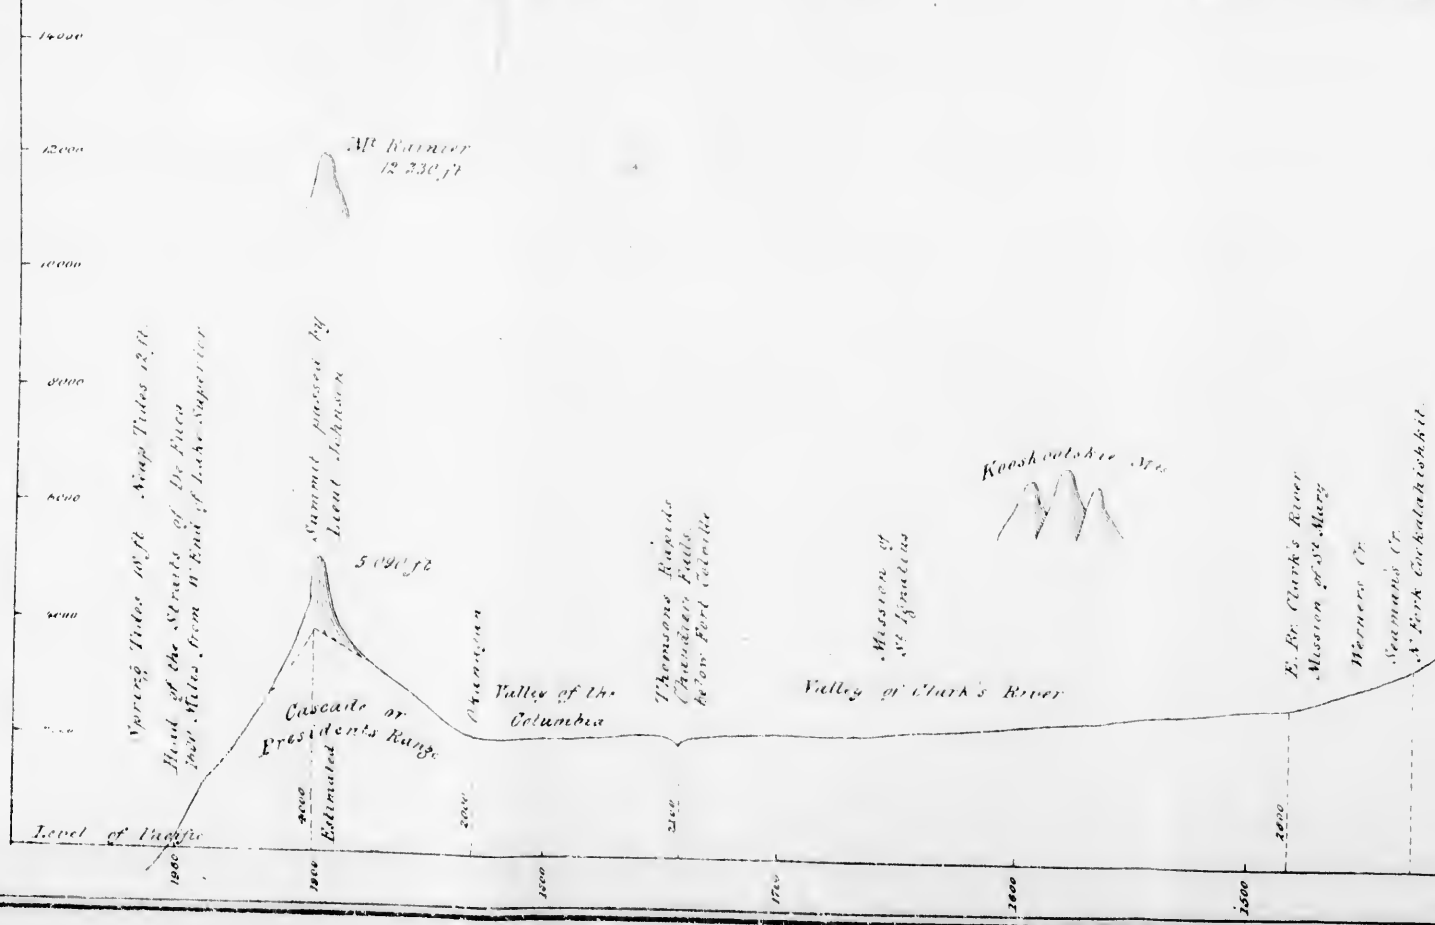 14000
12000
10000
8000
6000
4000
Mt Rainier
12 330 ft
Spring Tides 18 ft Neap Tides 12 ft.
Head of the Straits of De Fuca
Miles from W End of Lake Superior
Summit passed by
Lieut Johnson
5 090 ft
Cascade or
Presidents Range
4000
Estimated
Okanagan
2000
Valley of the
Columbia
Thomsons Rapids
Chaudiere Falls
below Fort Colville
2100
Mission of
St Ignatius
Valley of Clark's River
Kooskootskie Mts
E. Br. Clark's River
Mission of St Mary
2800
Werners Cr.
Seaman's Cr.
N Fork Cockalahishkit.
Level of Pacific
1960
1900
1700
1600
1500